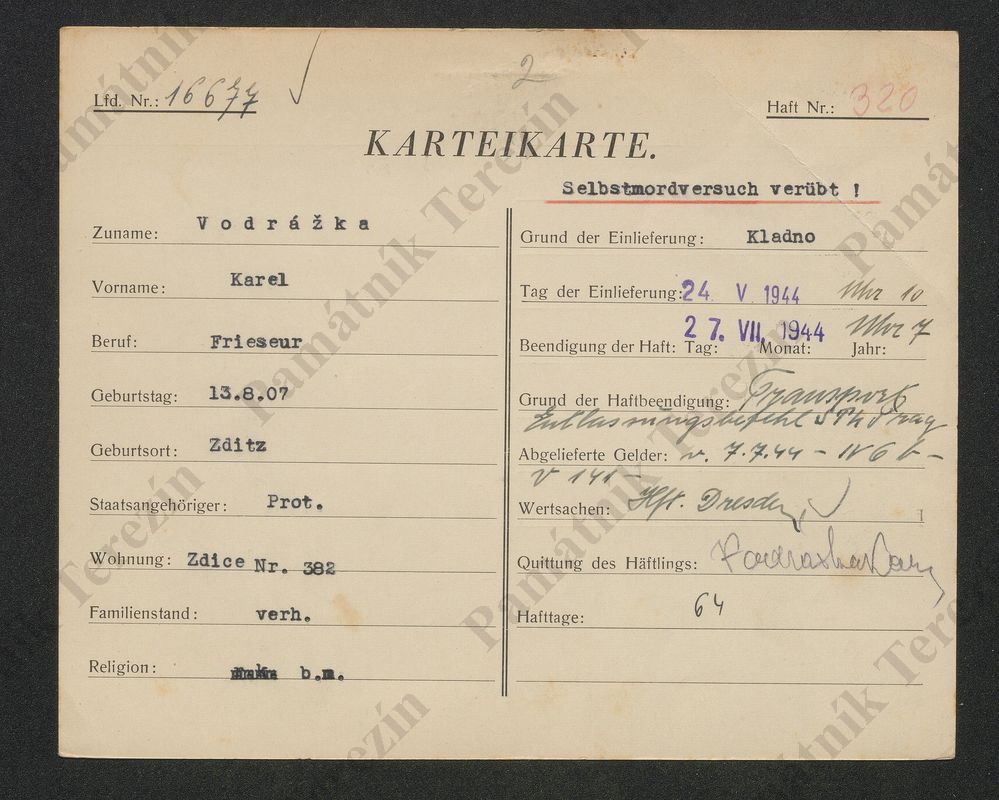 2
Lfd. Nr.: 16677
Haft Nr.: 320
KARTEIKARTE.
Selbstmordversuch verübt !
Zuname: Vodrážka
Vorname: Karel
Beruf: Frieseur
Geburtstag: 13.8.07
Geburtsort: Zditz
Staatsangehöriger: Prot.
Wohnung: Zdice Nr. 382
Familienstand: verh.
Religion: b.m.
Grund der Einlieferung: Kladno
Tag der Einlieferung: 24. V. 1944 Uhr 10
27. VII. 1944 Uhr 7
Beendigung der Haft: Tag: Monat: Jahr:
Grund der Haftbeendigung: Transport
Entlassungsbefehl Prag
Abgelieferte Gelder: v. 7.7.44 – IV 6 b –
V 141 –
Wertsachen: Hft. Dresden
Quittung des Häftlings:
Hafttage: 64
Památník Terezín